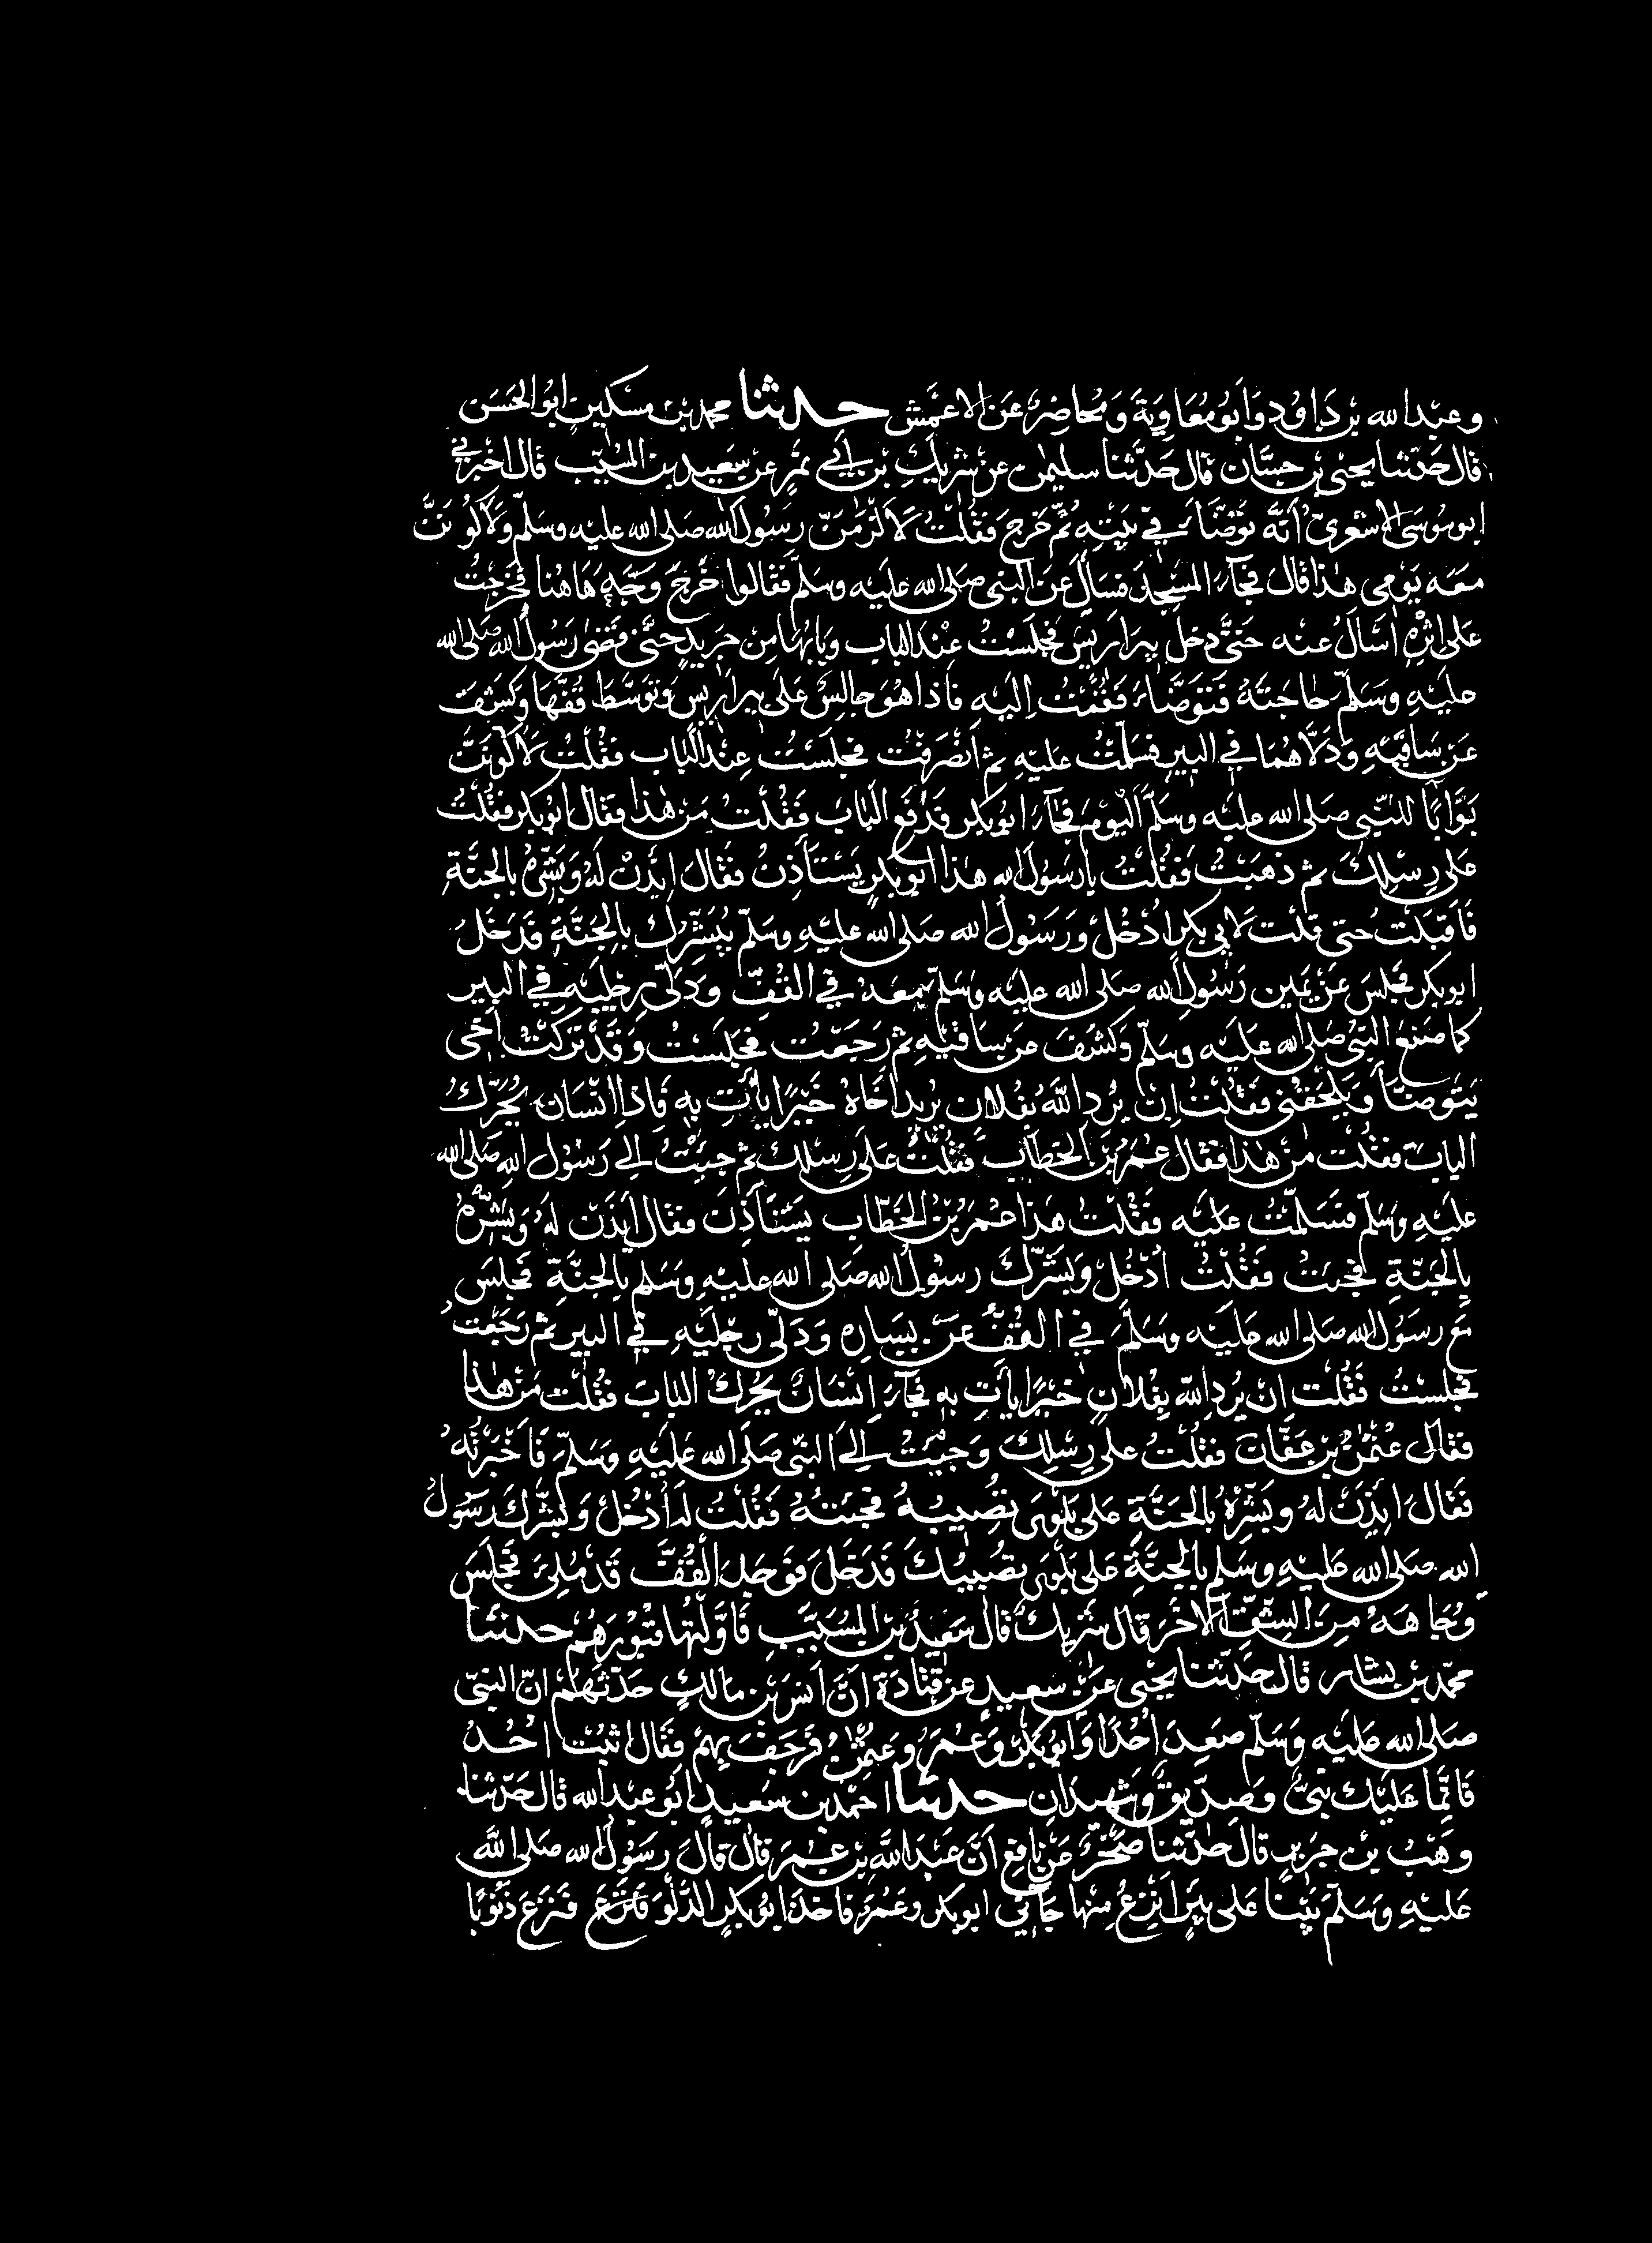 وعبد الله بن داود وابو معاوية ومحاضر عن الاعمش حدثنا محمد بن مسكين ابو الحسن
قال حدثنا يحيى بن حسان قال حدثنا سليمن عن شريك بن ابي نمر عن سعيد بن المسيب قال اخبرني
ابو موسى الاشعري انه توضأ في بيته ثم خرج فقلت لالزمن رسول الله صلى الله عليه وسلم ولاكونن
معه يومى هذا قال فجآء المسجد فسأل عن النبى صلى الله عليه وسلم فقالوا خرج ووجه هاهنا فخرجت
على اثره اسأل عنه حتى دخل بير اريس فجلست عند الباب وبابها من جريد حتى قضى رسول الله صلى الله
عليه وسلم حاجته فتوضأ فقمت اليه فاذا هو جالس على بير اريس وتوسط قفها وكشف
عن ساقيه ودلاهما في البير فسلمت عليه ثم انصرفت فجلست عند الباب فقلت لاكونن
بوابا للنبي صلى الله عليه وسلم اليوم فجآء ابو بكر فدفع الباب فقلت من هذا فقال ابو بكر فقلت
على رسلك ثم ذهبت فقلت يا رسول الله هذا ابو بكر يستأذن فقال ايذن له وبشره بالجنة
فاقبلت حتى قلت لابي بكر ادخل ورسول الله صلى الله عليه وسلم يبشرك بالجنة فدخل
ابو بكر فجلس عن يمين رسول الله صلى الله عليه وسلم معه في القف ودلى رجليه في البير
كما صنع النبى صلى الله عليه وسلم وكشف عن ساقيه ثم رجعت فجلست وقد تركت اخى
يتوضأ ويلحقنى فقلت ان يرد الله بفلان يريد اخاه خيرا يأت به فاذا انسان يحرك
الباب فقلت من هذا فقال عمر بن الخطاب فقلت على رسلك ثم جيت الى رسول الله صلى الله
عليه وسلم فسلمت عليه فقلت هذا عمر بن الخطاب يستأذن فقال ايذن له وبشره
بالجنة فجيت فقلت ادخل وبشرك رسول الله صلى الله عليه وسلم بالجنة فجلس
مع رسول الله صلى الله عليه وسلم في القف عن يساره ودلى رجليه في البير ثم رجعت
فجلست فقلت ان يرد الله بفلان خيرا يأت به فجآء انسان يحرك الباب فقلت من هذا
فقال عثمن بن عفان فقلت على رسلك وجيت الى النبى صلى الله عليه وسلم فاخبرته
فقال ايذن له وبشره بالجنة على بلوى تصيبه فجيته فقلت له ادخل وبشرك رسول
الله صلى الله عليه وسلم بالجنة على بلوى تصيبك فدخل فوجد القف قد ملئ فجلس
وجاهه من الشق الاخر قال شريك قال سعيد بن المسيب فاولتها قبورهم حدثنا
محمد بن بشار قال حدثنا يحيى عن سعيد عن قتادة ان انس بن مالك حدثهم ان النبى
صلى الله عليه وسلم صعد احدا وابو بكر وعمر وعثمن فرجف بهم فقال اثبت احد
فانما عليك نبى وصديق وشهيدان حدثنا احمد بن سعيد ابو عبد الله قال حدثنا
وهب بن جرير قال حدثنا صخر عن نافع ان عبد الله بن عمر قال قال رسول الله صلى الله
عليه وسلم بينا على بير انزع منها جآني ابو بكر وعمر فاخذ ابو بكر الدلو فنزع ذنوبا